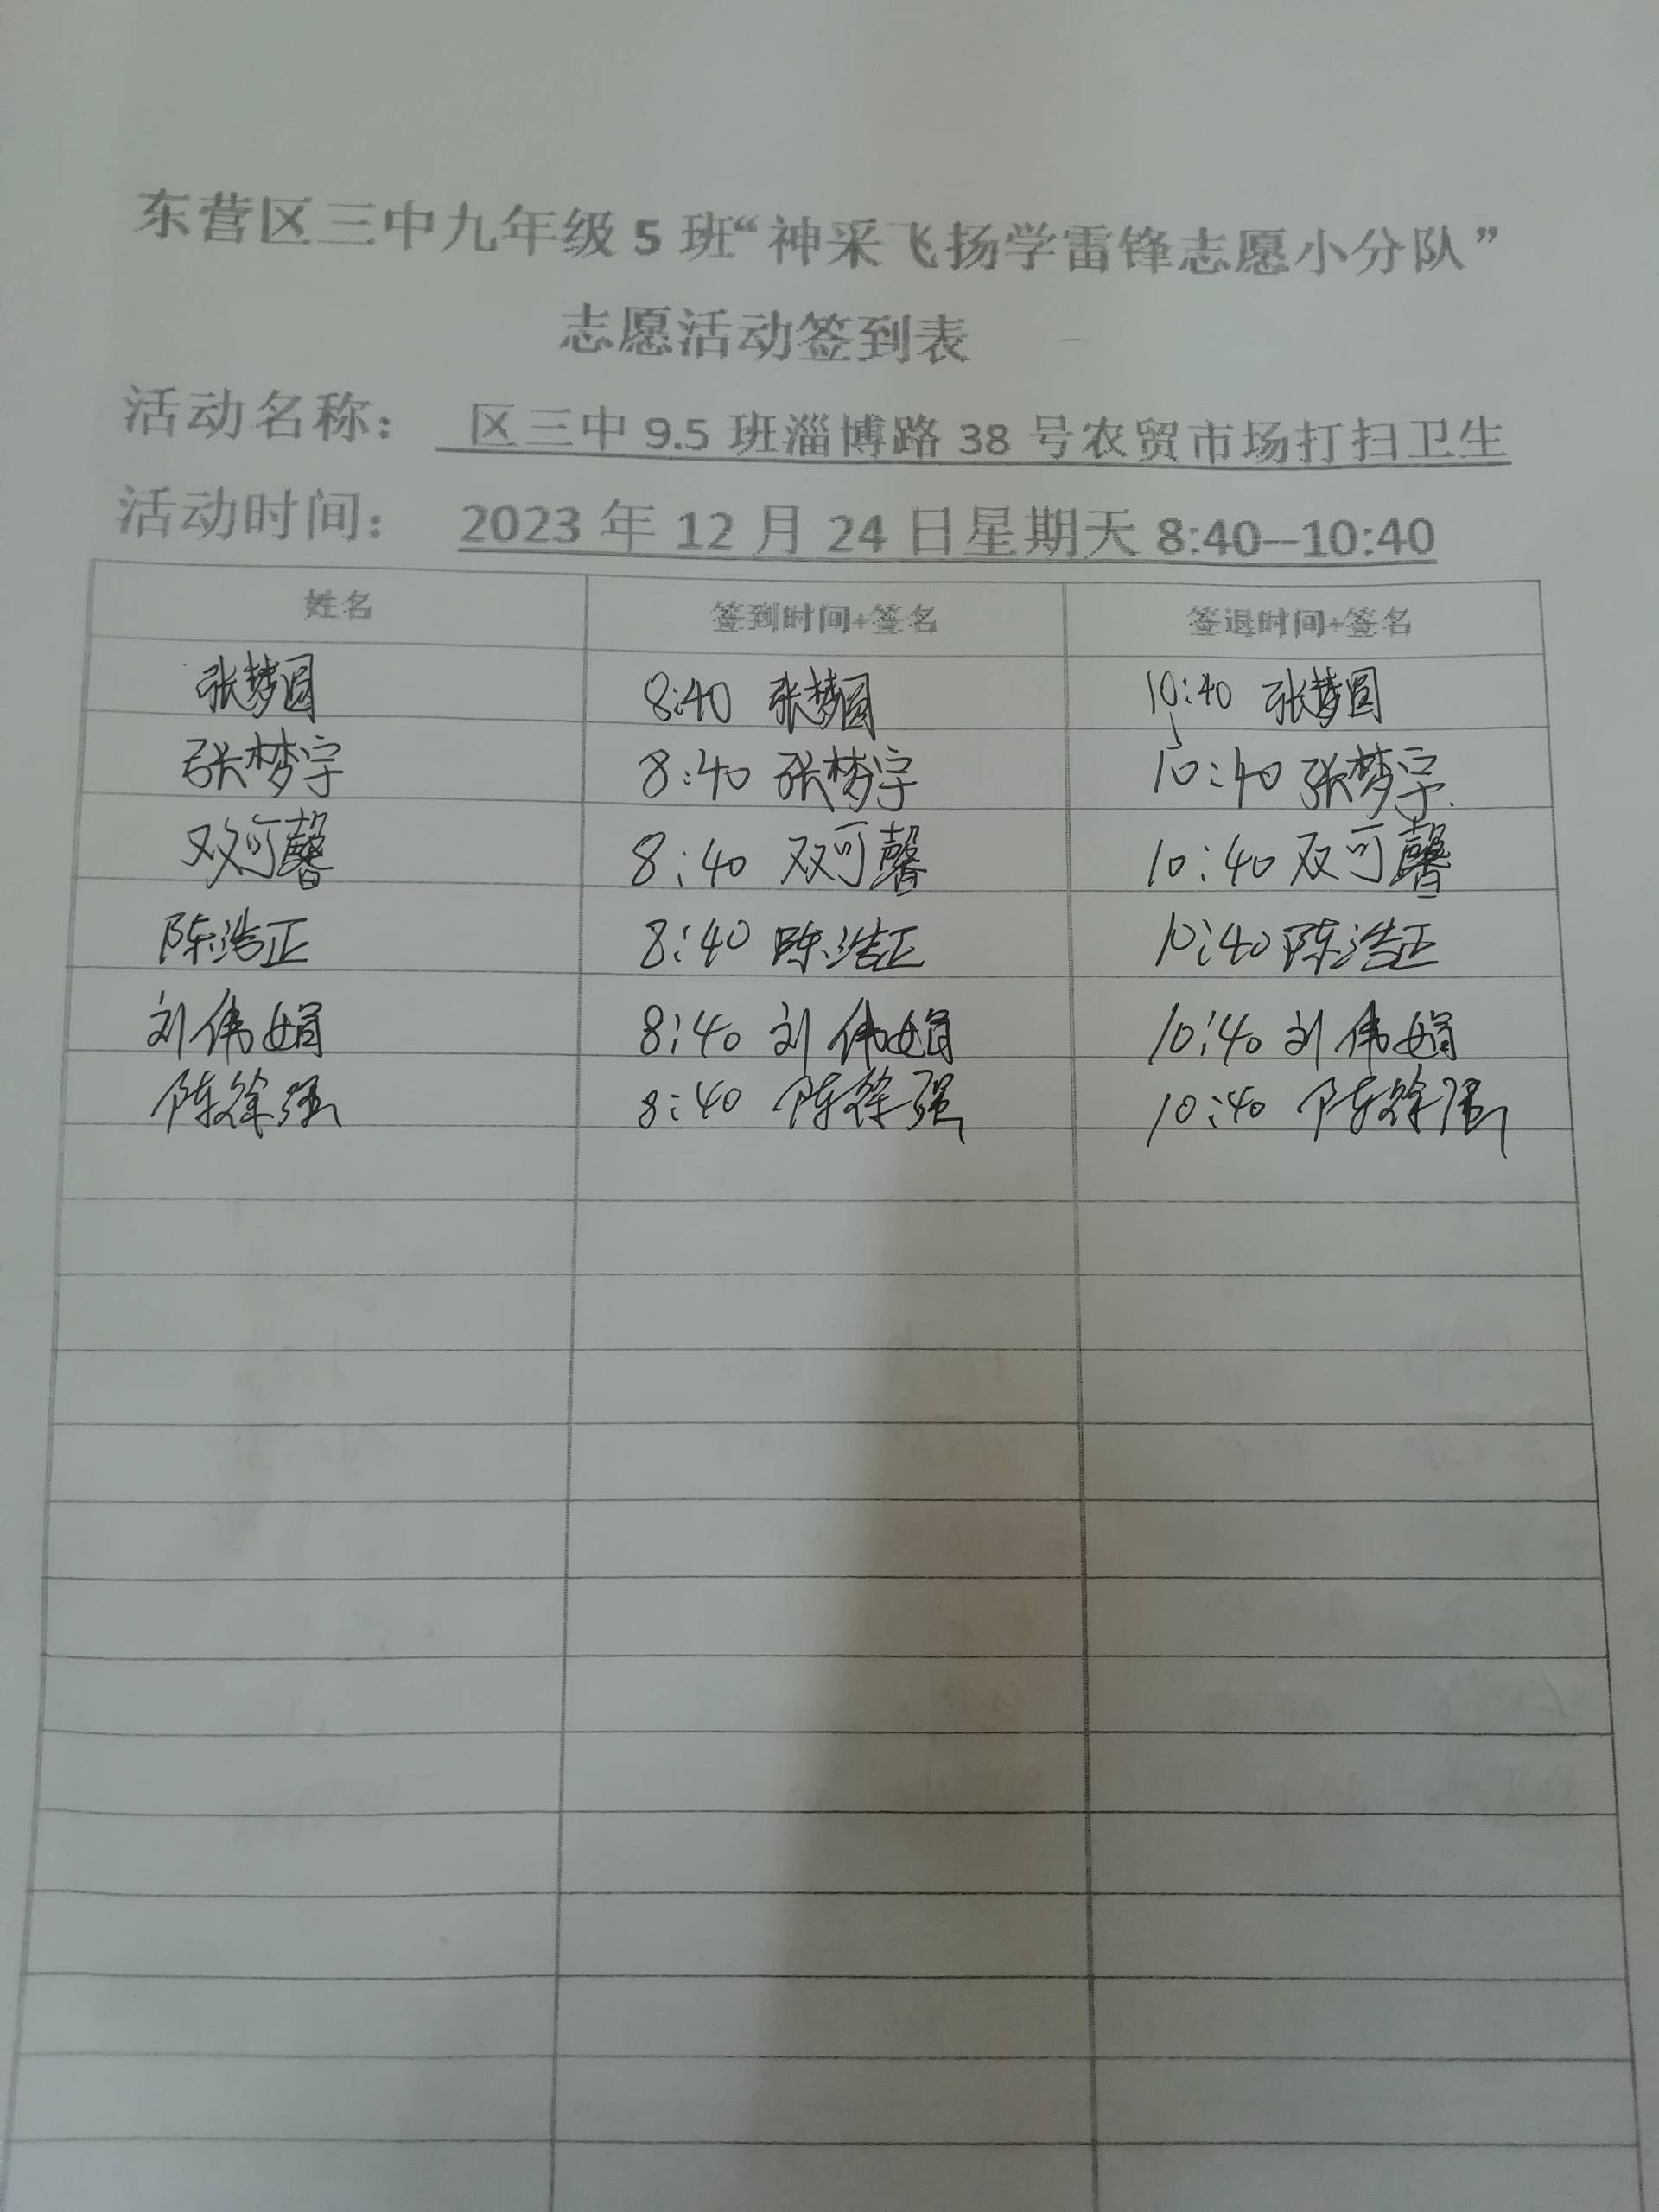 东营区三中九年级 5 班“神采飞扬学雷锋志愿小分队”
志愿活动签到表
活动名称： 区三中 9.5 班淄博路 38 号农贸市场打扫卫生
活动时间： 2023 年 12 月 24 日星期天 8:40—10:40
姓名 签到时间+签名 签退时间+签名
张梦圆 8:40 张梦圆 10:40 张梦圆
张梦宇 8:40 张梦宇 10:40 张梦宇.
双可馨 8:40 双可馨 10:40 双可馨
陈浩正 8:40 陈浩正 10:40 陈浩正
刘伟娟 8:40 刘伟娟 10:40 刘伟娟
陈徐强 8:40 陈徐强 10:40 陈徐强